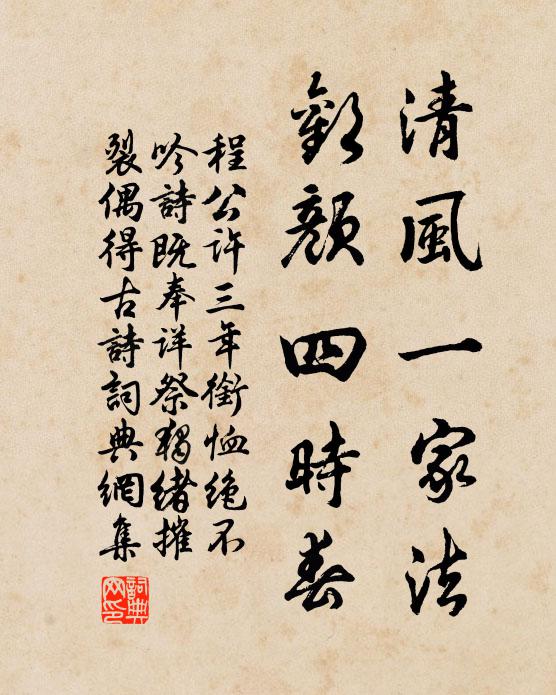 清風一家法
歡顏四時春
程公許三年銜恤絶不
吟詩既奉祥祭獨緒摧
裂偶得古詩詞典網集
詞典
网印